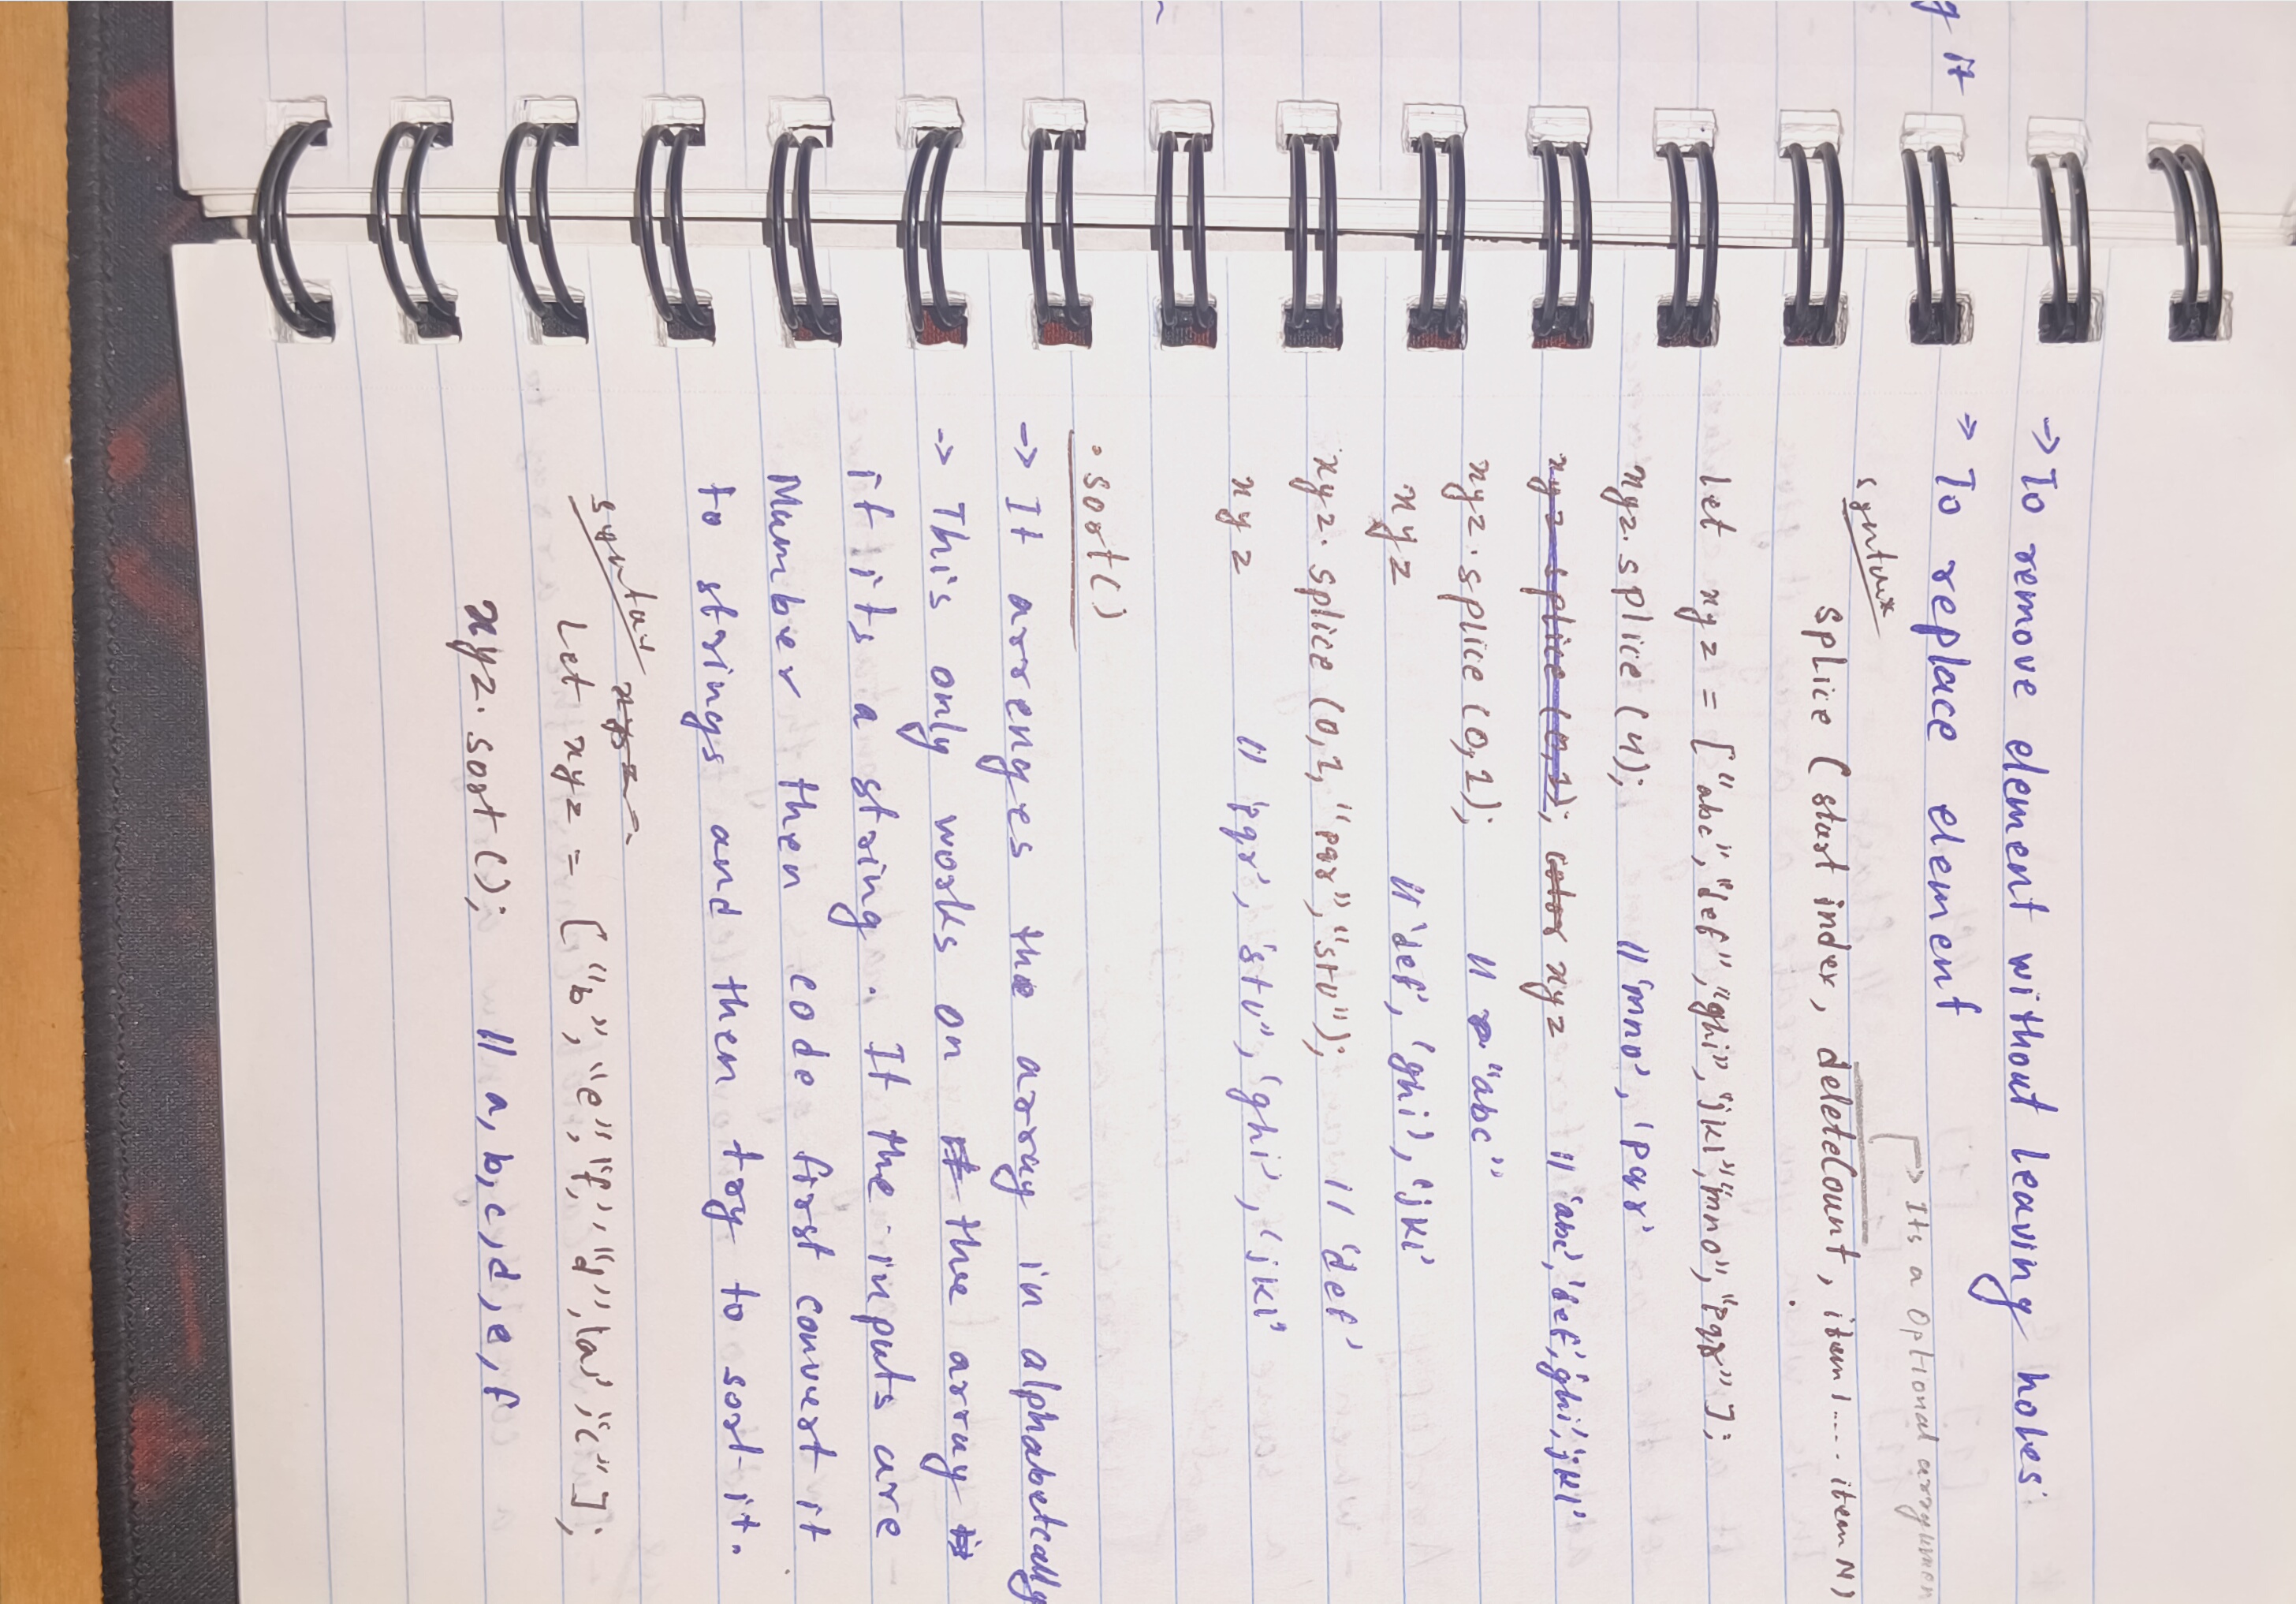 g it
-> To remove element without leaving holes
-> To replace element
-> Its a Optional arrgumen
syntax
splice (start index, deleteCount, item1.... itemN)
let xyz = ["abc","def","ghi","jkl","mno","pqr"];
xyz.splice (4); // 'mno', 'pqr'
xyz splice (0,1); color xyz // 'abc','def','ghi','jkl'
xyz.splice (0,1); // "abc"
xyz // 'def', 'ghi', 'jkl'
xyz. splice (0,1, "pqr","stu"); // 'def'
xyz // 'pqr', 'stu", 'ghi', 'jkl'
.sort()
-> It arrenges the array in alphabetcally
-> This only works on the array
if its a string. If the inputs are
Number then code first convert it
to strings and then try to sort it.
syntax xyz
Let xyz = ["b","e","f,' "d",'a','c"];
xyz. sort (); // a, b, c, d, e, f